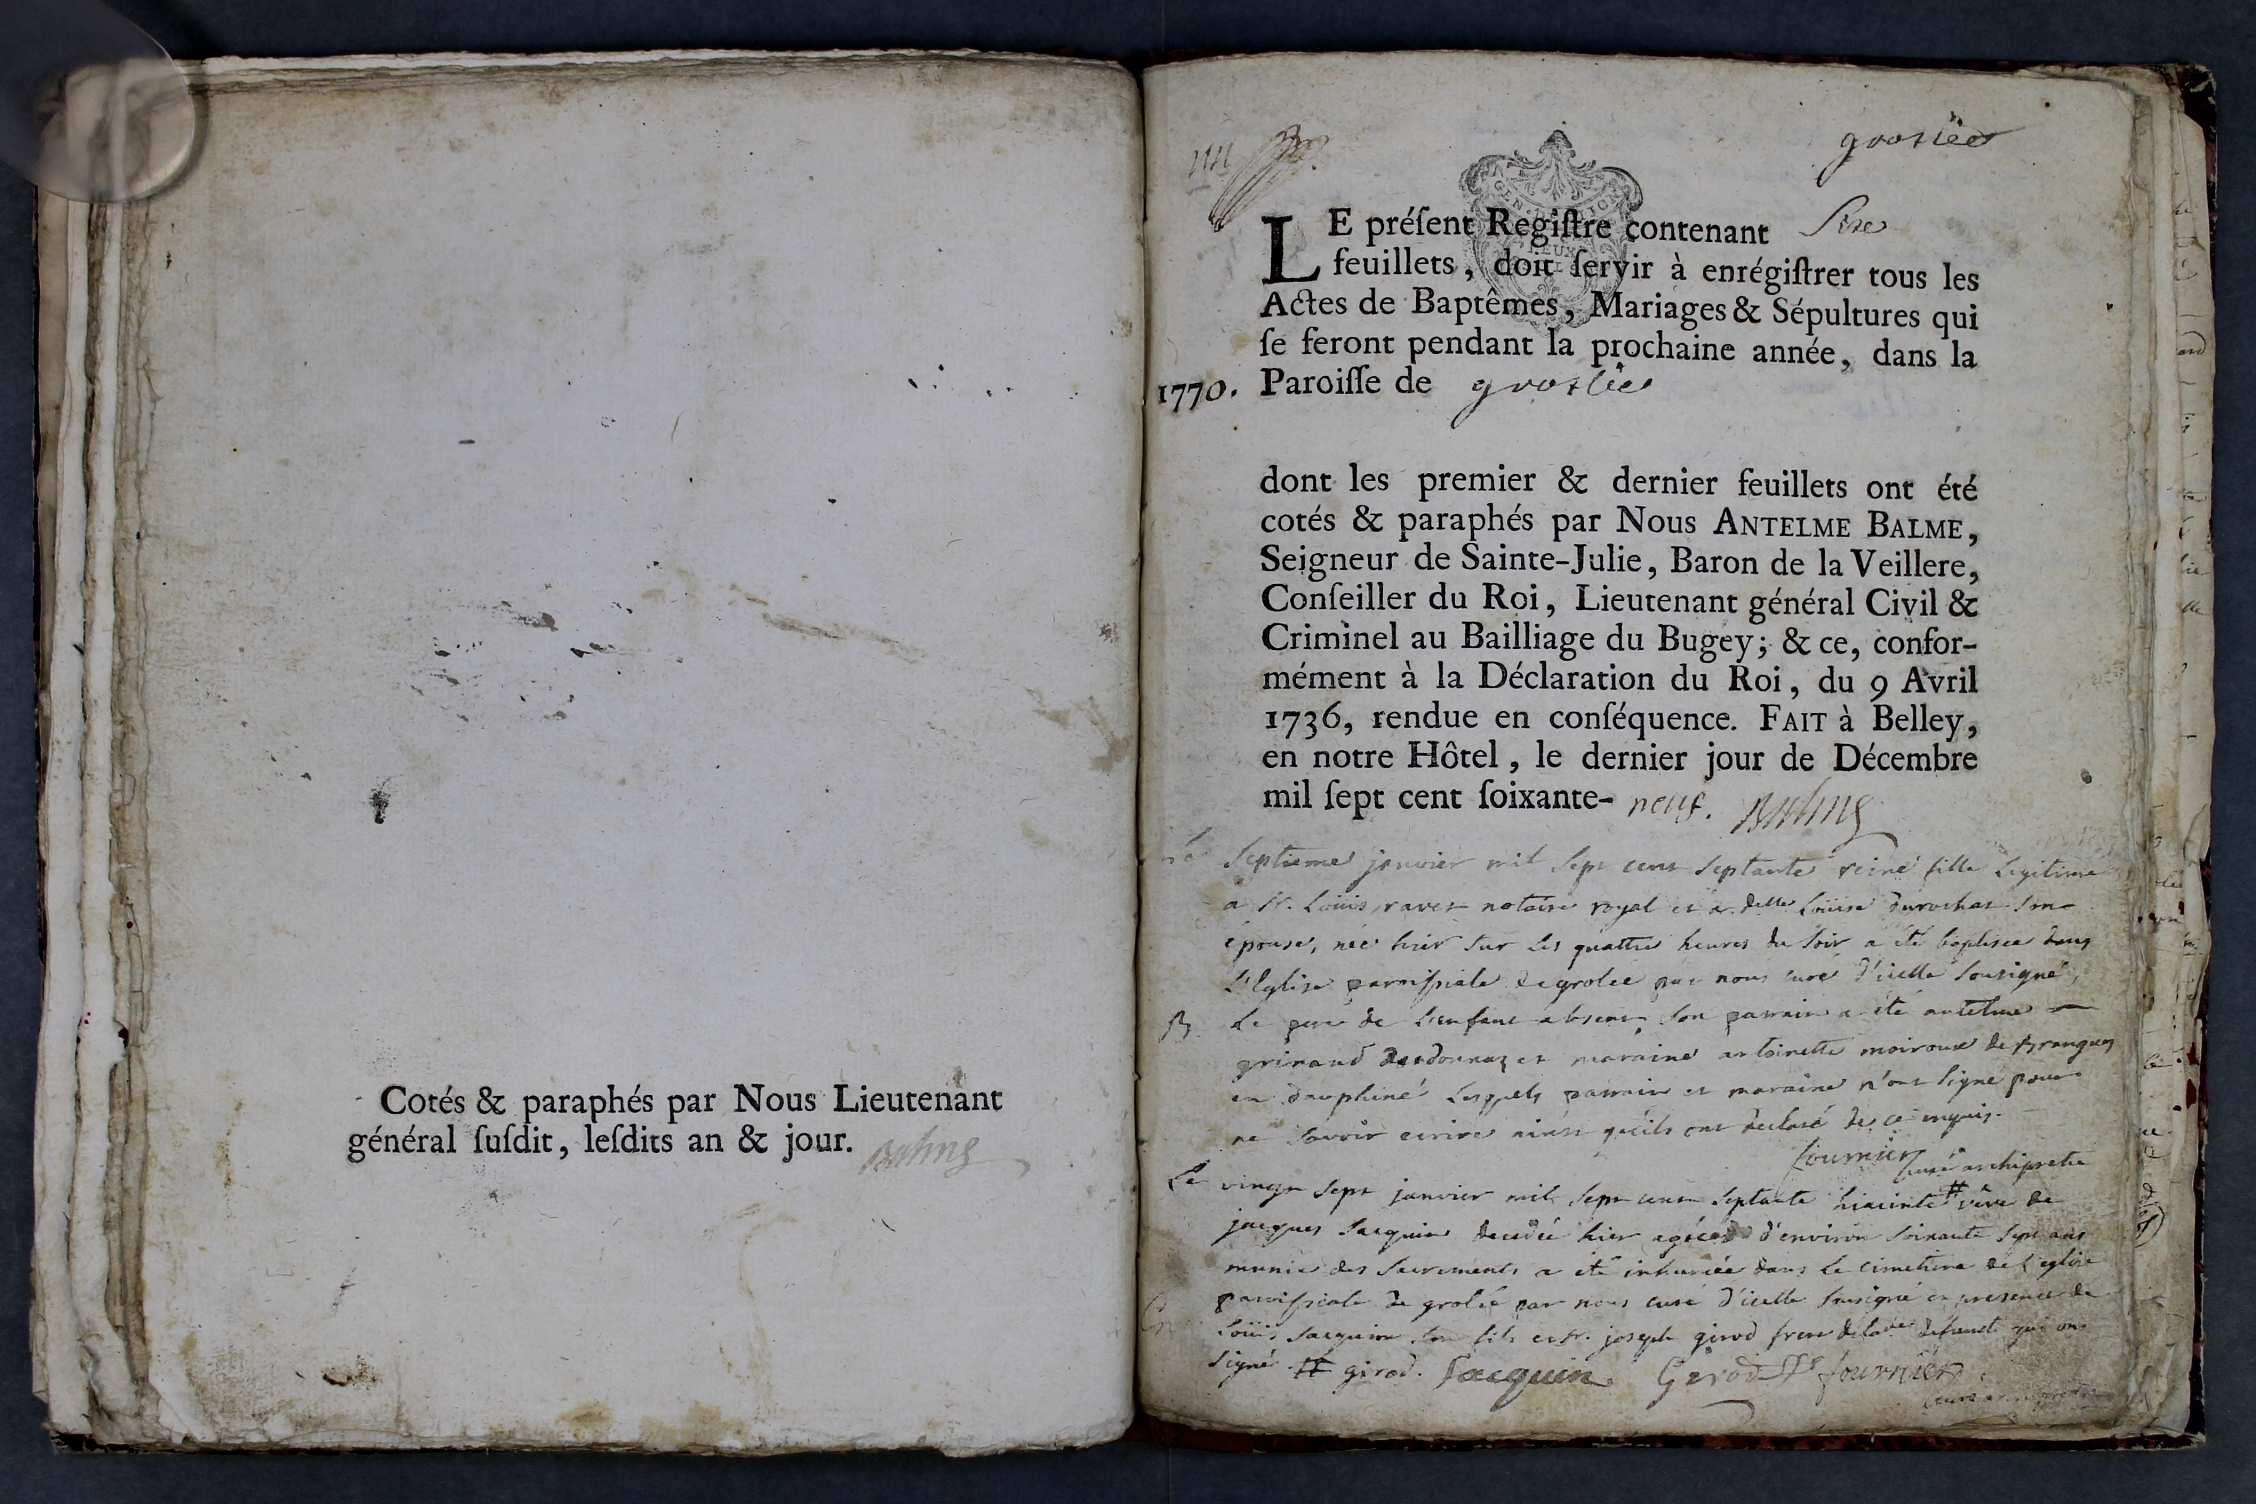 Cotés & paraphés par Nous Lieutenant
général ſuſdit, leſdits an & jour. Balme
groslée
LE préſent Regiſtre contenant Six
feuillets, doit ſervir à enrégiſtrer tous les
Actes de Baptêmes, Mariages & Sépultures qui
ſe feront pendant la prochaine année, dans la
1770. Paroiſſe de groslée
dont les premier & dernier feuillets ont été
cotés & paraphés par Nous ANTELME BALME,
Seigneur de Sainte-Julie, Baron de la Veillere,
Conſeiller du Roi, Lieutenant général Civil &
Criminel au Bailliage du Bugey; & ce, confor-
mément à la Déclaration du Roi, du 9 Avril
1736, rendue en conſéquence. FAIT à Belley,
en notre Hôtel, le dernier jour de Décembre
mil ſept cent ſoixante- neuf. Balme
Le septieme janvier mil sept cent septante reine fille legitime
a sr. Loüis ravet notaire royal et a delle Loüise durochat son
épouse, née hier sur les quattre heures du soir a été baptisée dans
L'Eglise paroissiale de grolée par nous curé d'icelle sousigné,
B Le pere de l'enfant absent, son parrain a été antelme
grinand et maraine antoinette moiroux de Brangues
en dauphiné lesquels parrain et maraine n'ont signé pour
ne savoir ecrire ainsi qu'ils ont declaré de ce enquis.
fournier curé archipretre
Le vingt sept janvier mil sept cent septante hiacinte # vëve de
jacques Jacquin decedée hier agée d'environ soixante sept ans
munie des sacrements a été inhumée dans le cimetiere de l'eglise
paroissiale de grolée par nous curé d'icelle sousigné en presence de
Loüis Jacquin son fils et sr. joseph girod frere de lade defuncte qui ont
signé # girod. Jacquin Girod fournier
curé archipretre